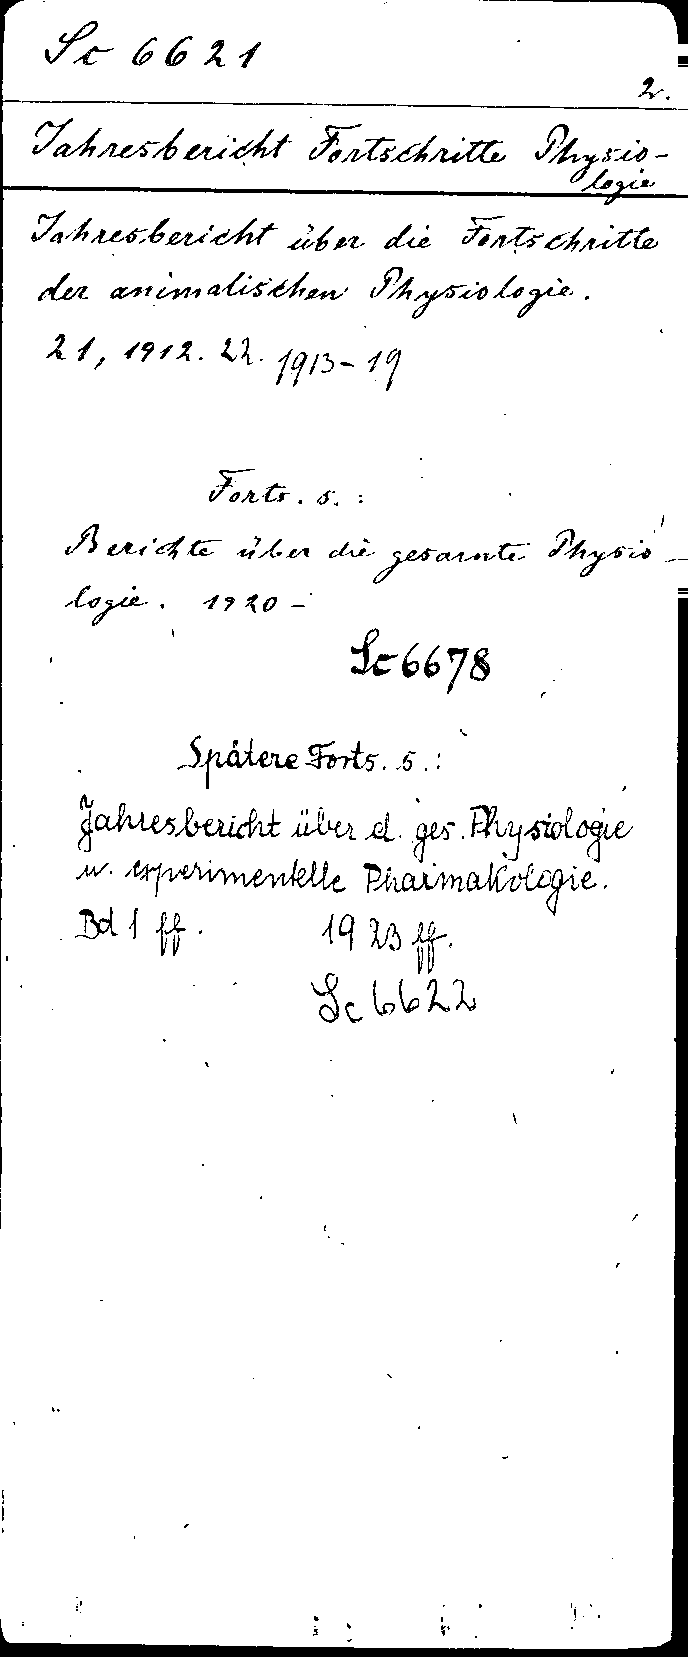 Sc 6621
2.
Jahresbericht Fortschritte Physio-
logie
Jahresbericht über die Fortschritte
der animalischen Physiologie.
21, 1912. 22. 1913-19
Forts. s.:
Berichte über die gesamte Physio-
logie. 1920-
Sc 6678
Spätere Forts. s.:
Jahresbericht über d. ges. Physiologie
u. experimentelle Pharmakologie.
Bd 1 ff. 1923 ff.
Sc 6622